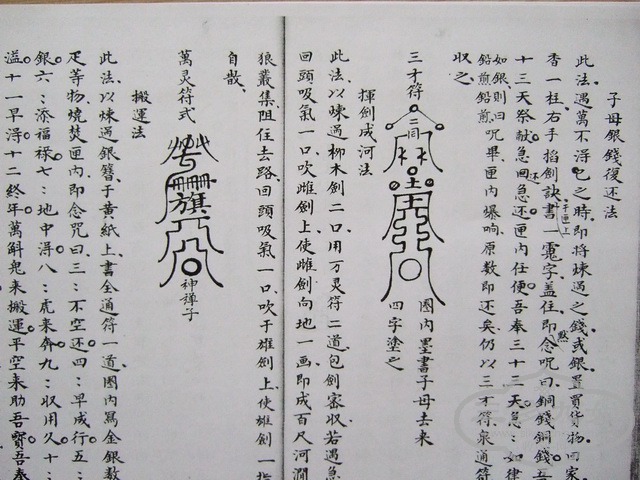 子母銀錢復還法
此法、遇萬不得已之時、即將煉過之錢、或銀、置買貨物、回家
香一柱、右手掐劍訣、書一䨺字蓋住、即默念咒曰、銅錢銅錢、吾
于匣上
十三天祭献、急回急还、还匣内任便、吾奉三十三天、急:如律
如銀、則曰
鉛煎鉛煎、咒畢、匣内爆响、原数即还矣、仍以三才符、泉通符
収之、
三才符
二同
土
圏内墨書子母去来
四字塗之
揮劍成河法
此法、以煉過柳木劍二口、用万灵符二道、包劍密収、若遇急
回頭、吸氣一口、吹雌劍上、使雌劍向地一画、即成百尺河澗
狼叢集、阻住去路、回頭吸氣一口、吹于雄劍上、使雄劍一指
自散、
萬灵符式
旗
神禅子
搬運法
此法、以煉過銀簪、于黄紙上、書全通符一道、圏内寫金銀数
疋等物、燒焚匣内、即念咒曰、三:不空还、四:早成行、五:
銀、六:添福禄、七:地中得、八:虎来奔、九:収用久、十:
溢、十一早得、十二終年、萬斛鬼来搬運、平空来助吾、寳吾奉